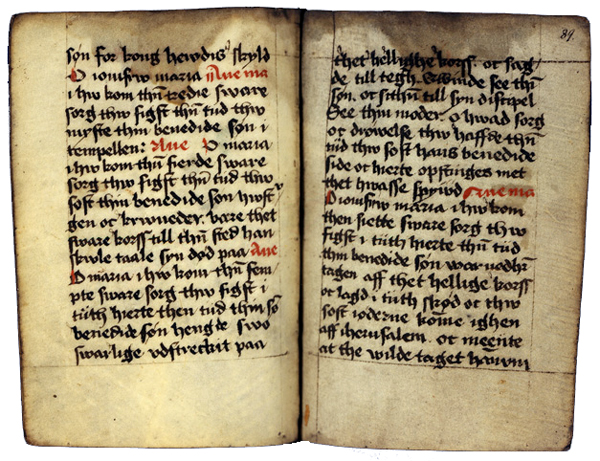 søn for kong herodis skyld
O iomfrw maria Aue ma
i hw kom thn̄ tredie sware
sorg thw figst thn̄ tud thw
myste thin benedide søn i
tempellen: Aue O maria
i hw kom thn̄ fierde sware
sorg thw figst thn̄ tud thw
sost thin benedide søn hwst
gen oc krwneder. bare thet
sware korss till thn̄ sted han
skwle taale syn død paa Aue
O maria i hw kom thn̄ fem
pte sware sorg thw figst i
tiith hierte then tud thin
benedide søn hengde swo
swarlige vdstreckit paa
89.
thet hellighe korss. oc sag
de till tegh. Qwinde see thn̄
søn. oc sithn̄ till syn discipel
See thin moder. O hwad sorg
oc drowelse thw haffde thn̄
tud thw sost hans benedide
side oc hierte opstinges met
thet hwasse spywd Aue ma
O iomfrw maria i hw kom
then siette sware sorg thw
figst i tiith hierte thn̄ tud
thin benedide søn war nedhr̄
tagen aff thet hellige korss
oc lagd i tiith skød oc thw
sost ioderne kōme ighen
aff iherusalem. oc meente
at the wilde taget hanwm